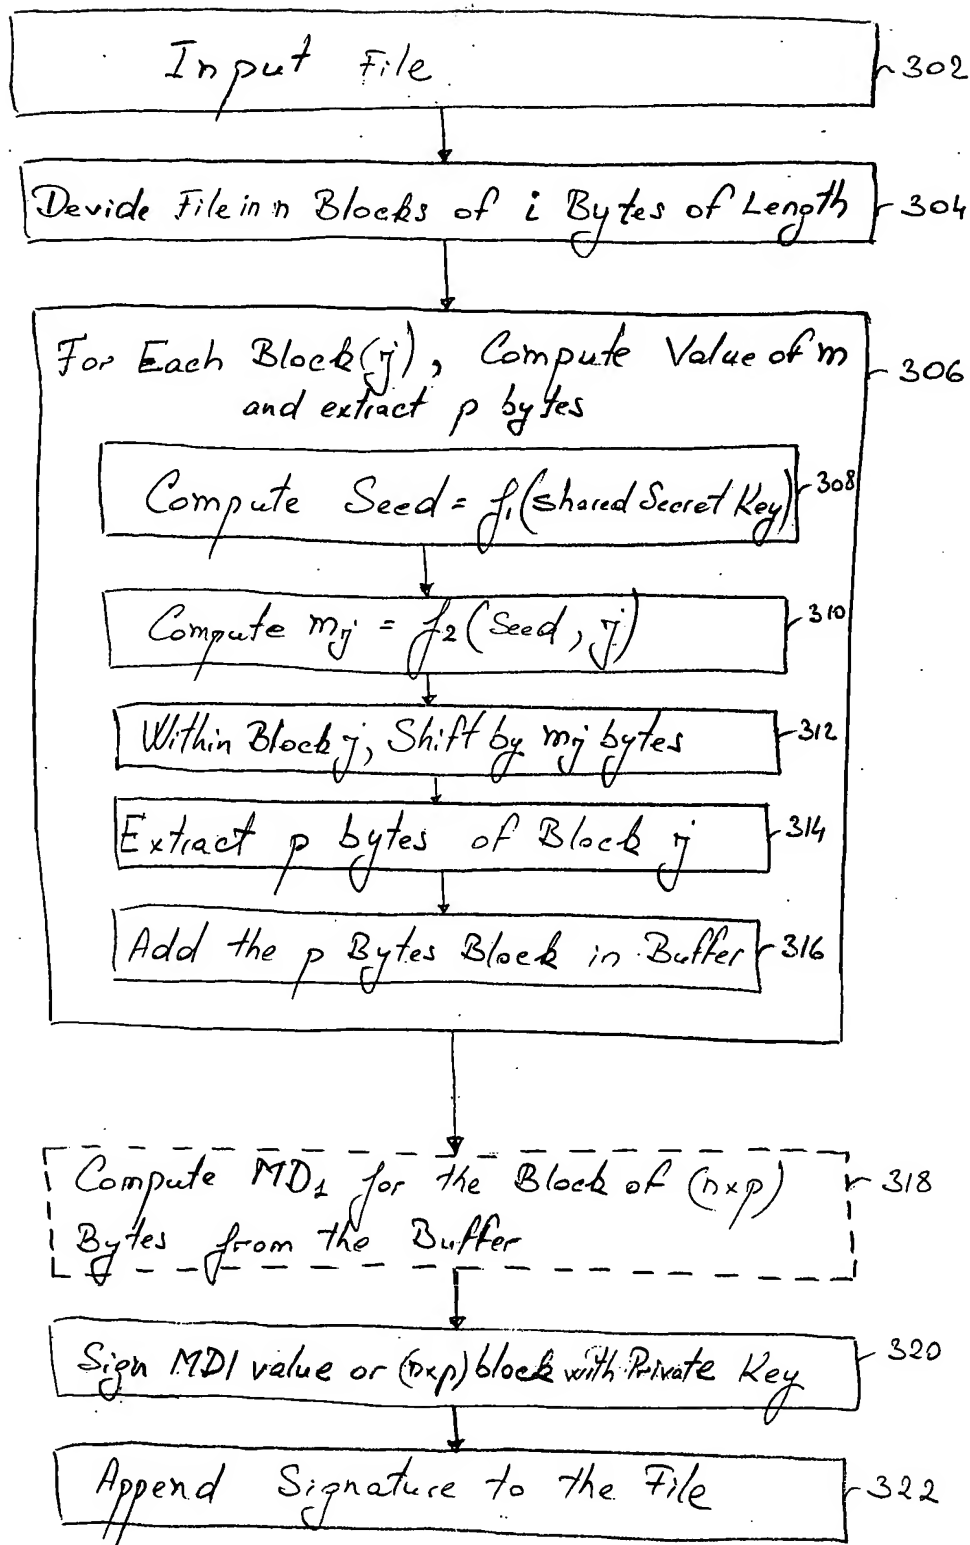 Input File
302
Devide File in n Blocks of i Bytes of Length
304
For Each Block(j), Compute Value of m
306
and extract p bytes
Compute Seed = f1(shared Secret Key)
308
Compute mj = f2(Seed, j)
310
Within Block j, Shift by mj bytes
312
Extract p bytes of Block j
314
Add the p Bytes Block in Buffer
316
Compute MD1 for the Block of (n×p)
318
Bytes from the Buffer
Sign MD1 value or (n×p) block with Private Key
320
Append Signature to the File
322